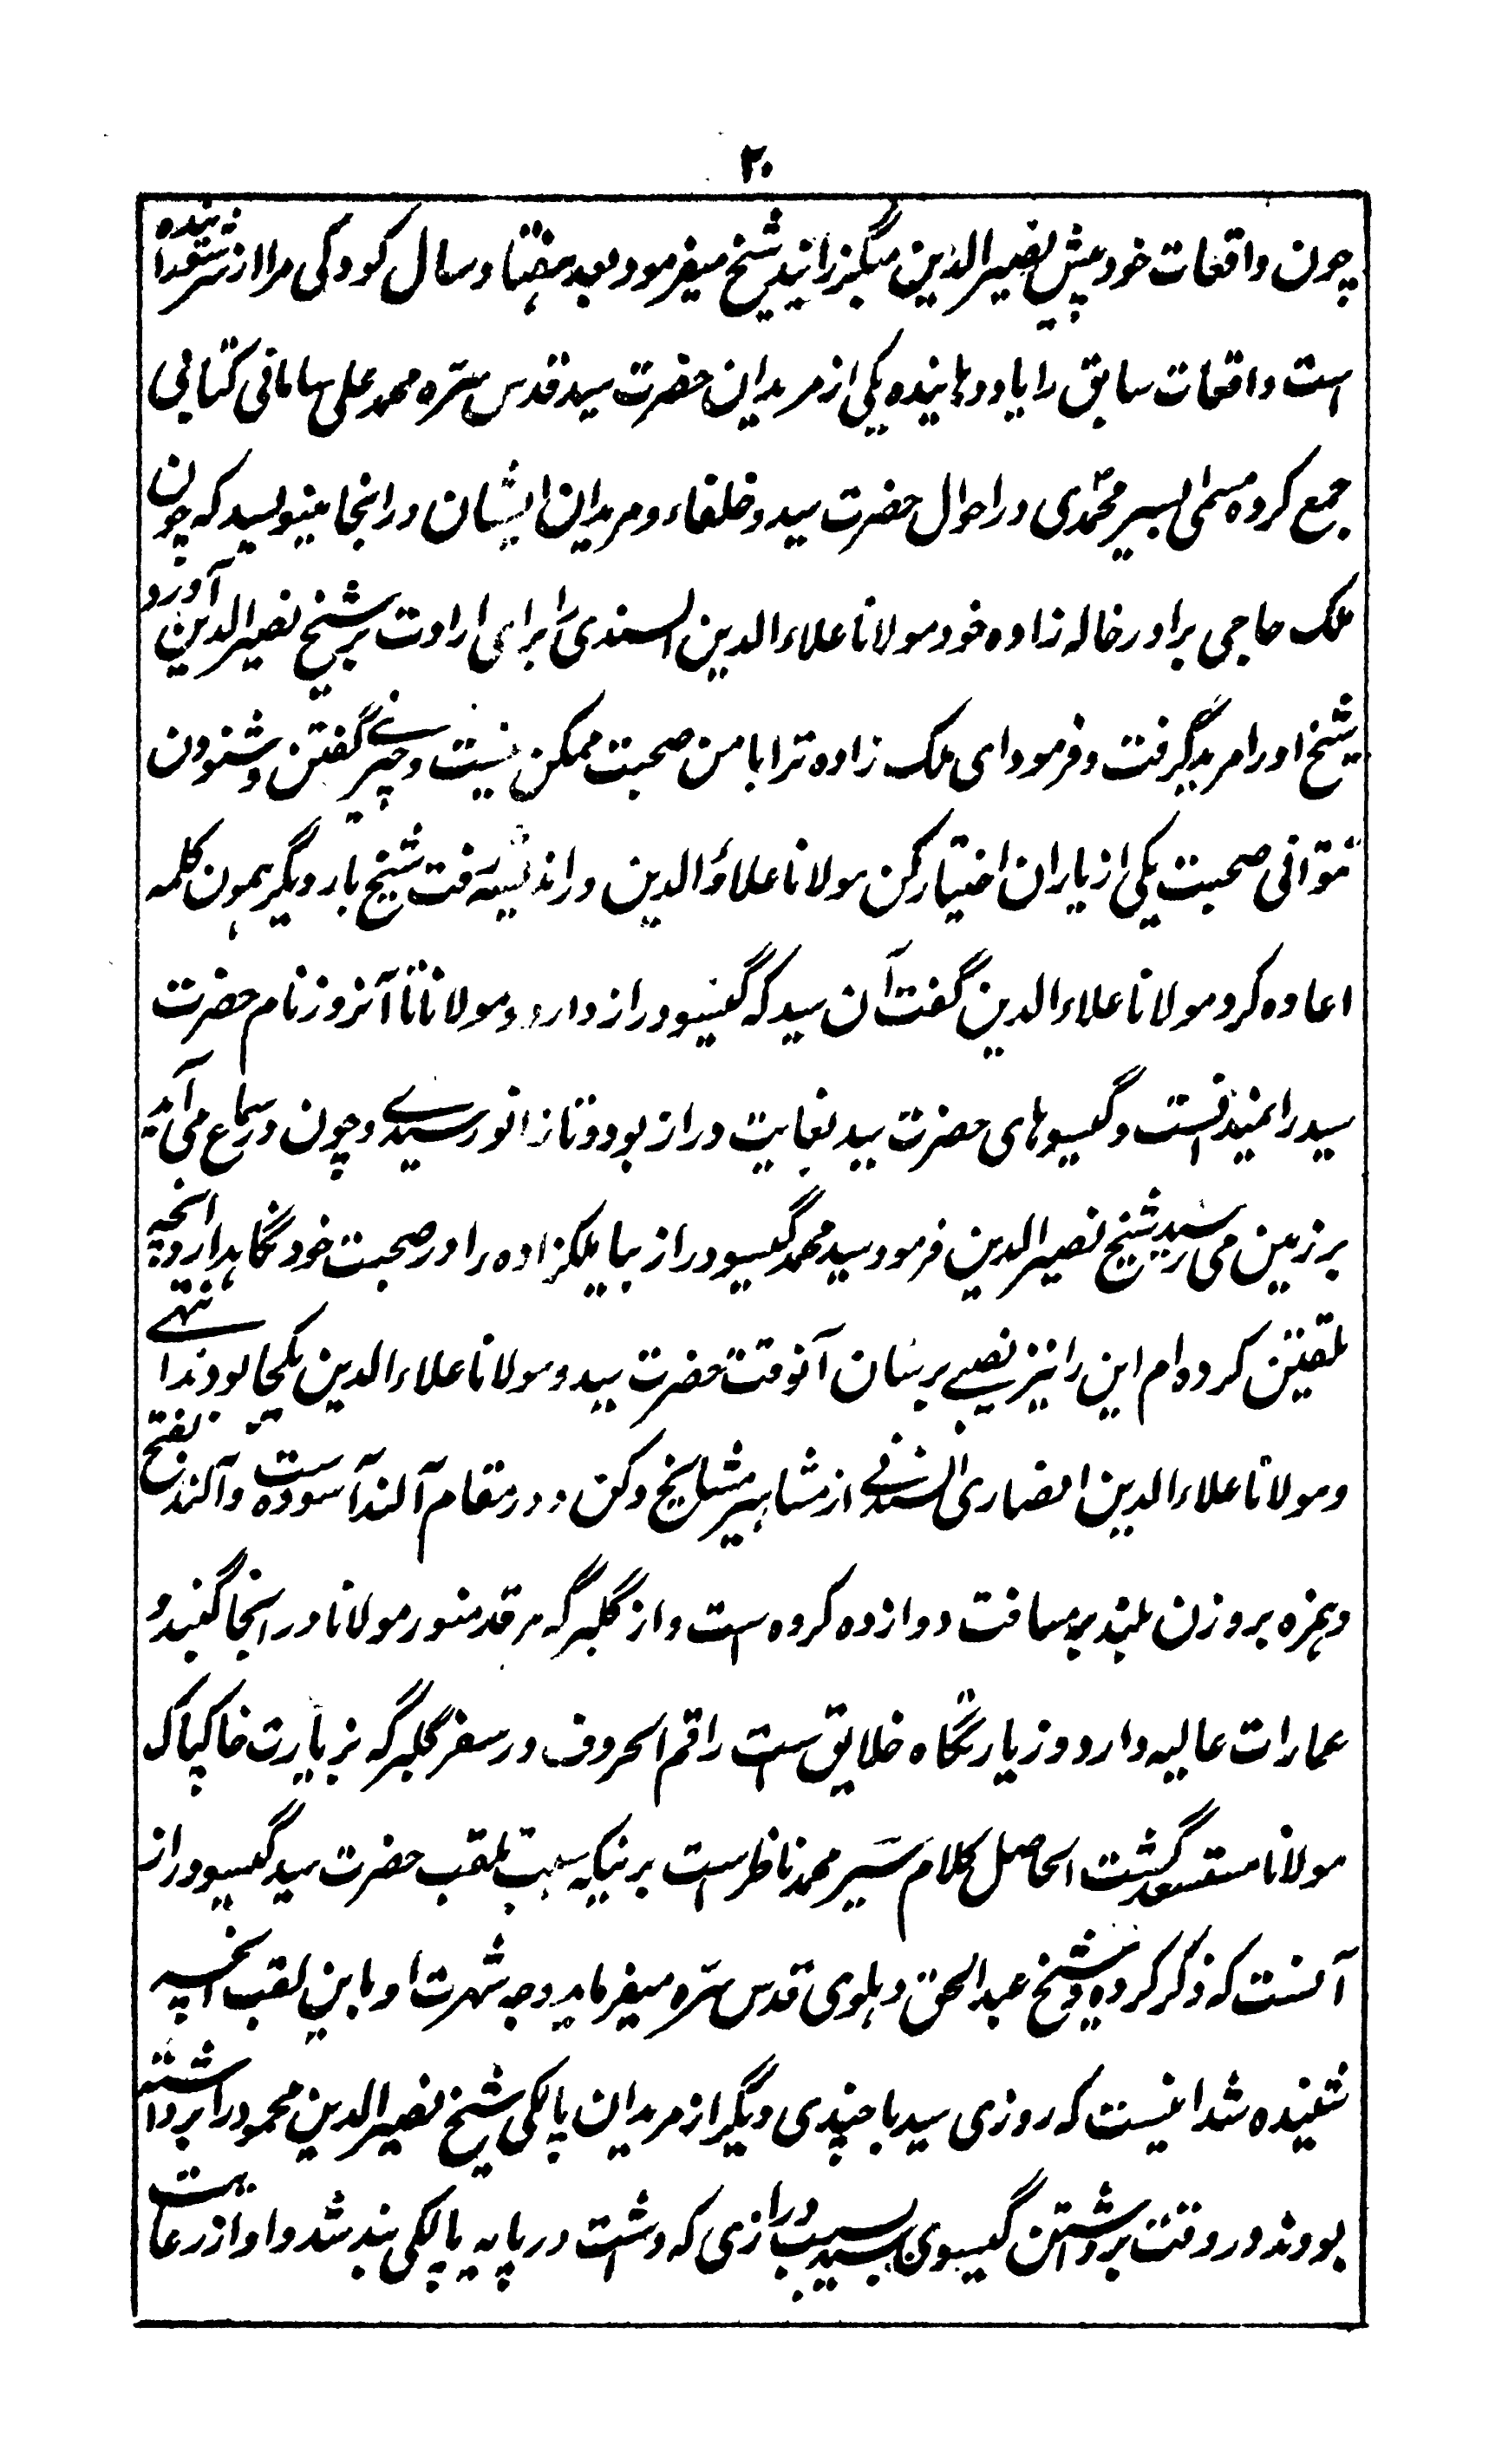 ۲۰
چون واقعات خود پیش نصیرالدین میگذرانید شیخ میفرمود بعد هفتاد سال کودکی مرا از سر شوراننده
است واقعات سابق را یاد دهانیده یکی از مریدان حضرت سید قدس سره محمد علی سامانی کتابی
جمع کرده مسمی بسیر محمدی در احوال حضرت سید و خلفاء و مریدان ایشان در انجا مینویسد که چون
ملک حاجی برادر خاله زاده خود مولانا علاءالدین السندی را برای ارادت بر شیخ نصیرالدین آورد
شیخ او را مرید گرفت و فرمود ای ملک زاده ترا با من صحبت ممکن نیست و چیزے گفتن و شنودن
نتوانی صحبت یکی از یاران اختیار کن مولانا علاؤالدین در اندیشه رفت شیخ بار دیگر همون کلمه
اعاده کرد مولانا علاءالدین گفت آن سید که گیسو دراز دارد و مولانا تا آنروز نام حضرت
سید را نمیدانست و گیسوهای حضرت سید بغایت دراز بود و تا زانو رسیدے و چون در سماع می آمد
بر زمین می رسید شیخ نصیرالدین فرمود سید محمد گیسو دراز بیا ملکزاده را در صحبت خود نگاهدار و انچه
تلقین کرده ام این را نیز نصیبے برسان آنوقت حضرت سید و مولانا علاءالدین یکجا بودند انتهے
و مولانا علاءالدین انصاری السندے از مشاهیر مشایخ دکن و در مقام آلند آسوده ست و آلند بفتح
و همزه بروزن بلند بر مسافت دوازده کروه است و از گلبرگه مرقد منور مولانا در انجا گنبد و
عمارات عالیه دارد و زیارتگاه خلایق ست راقم الحروف در سفر گلبرگه بزیارت خاکپاک
مولانا مستسعد گشت الحاصل کلام سیر محمد ناظر است بر نیکه سبب تلقب حضرت سید گیسودراز
آنست که ذکر کرده و شیخ عبدالحق دهلوی قدس سره میفرماید وجه شهرت او باین لقب انچه
شنیده شد اینست که روزی سید با چندی دیگر از مریدان پالکی شیخ نصیرالدین محمود را برداشته
بودند در وقت برداشتن گیسوی سید بسبب درازی که داشت در پایه پالکی بند شد و او از رعایت